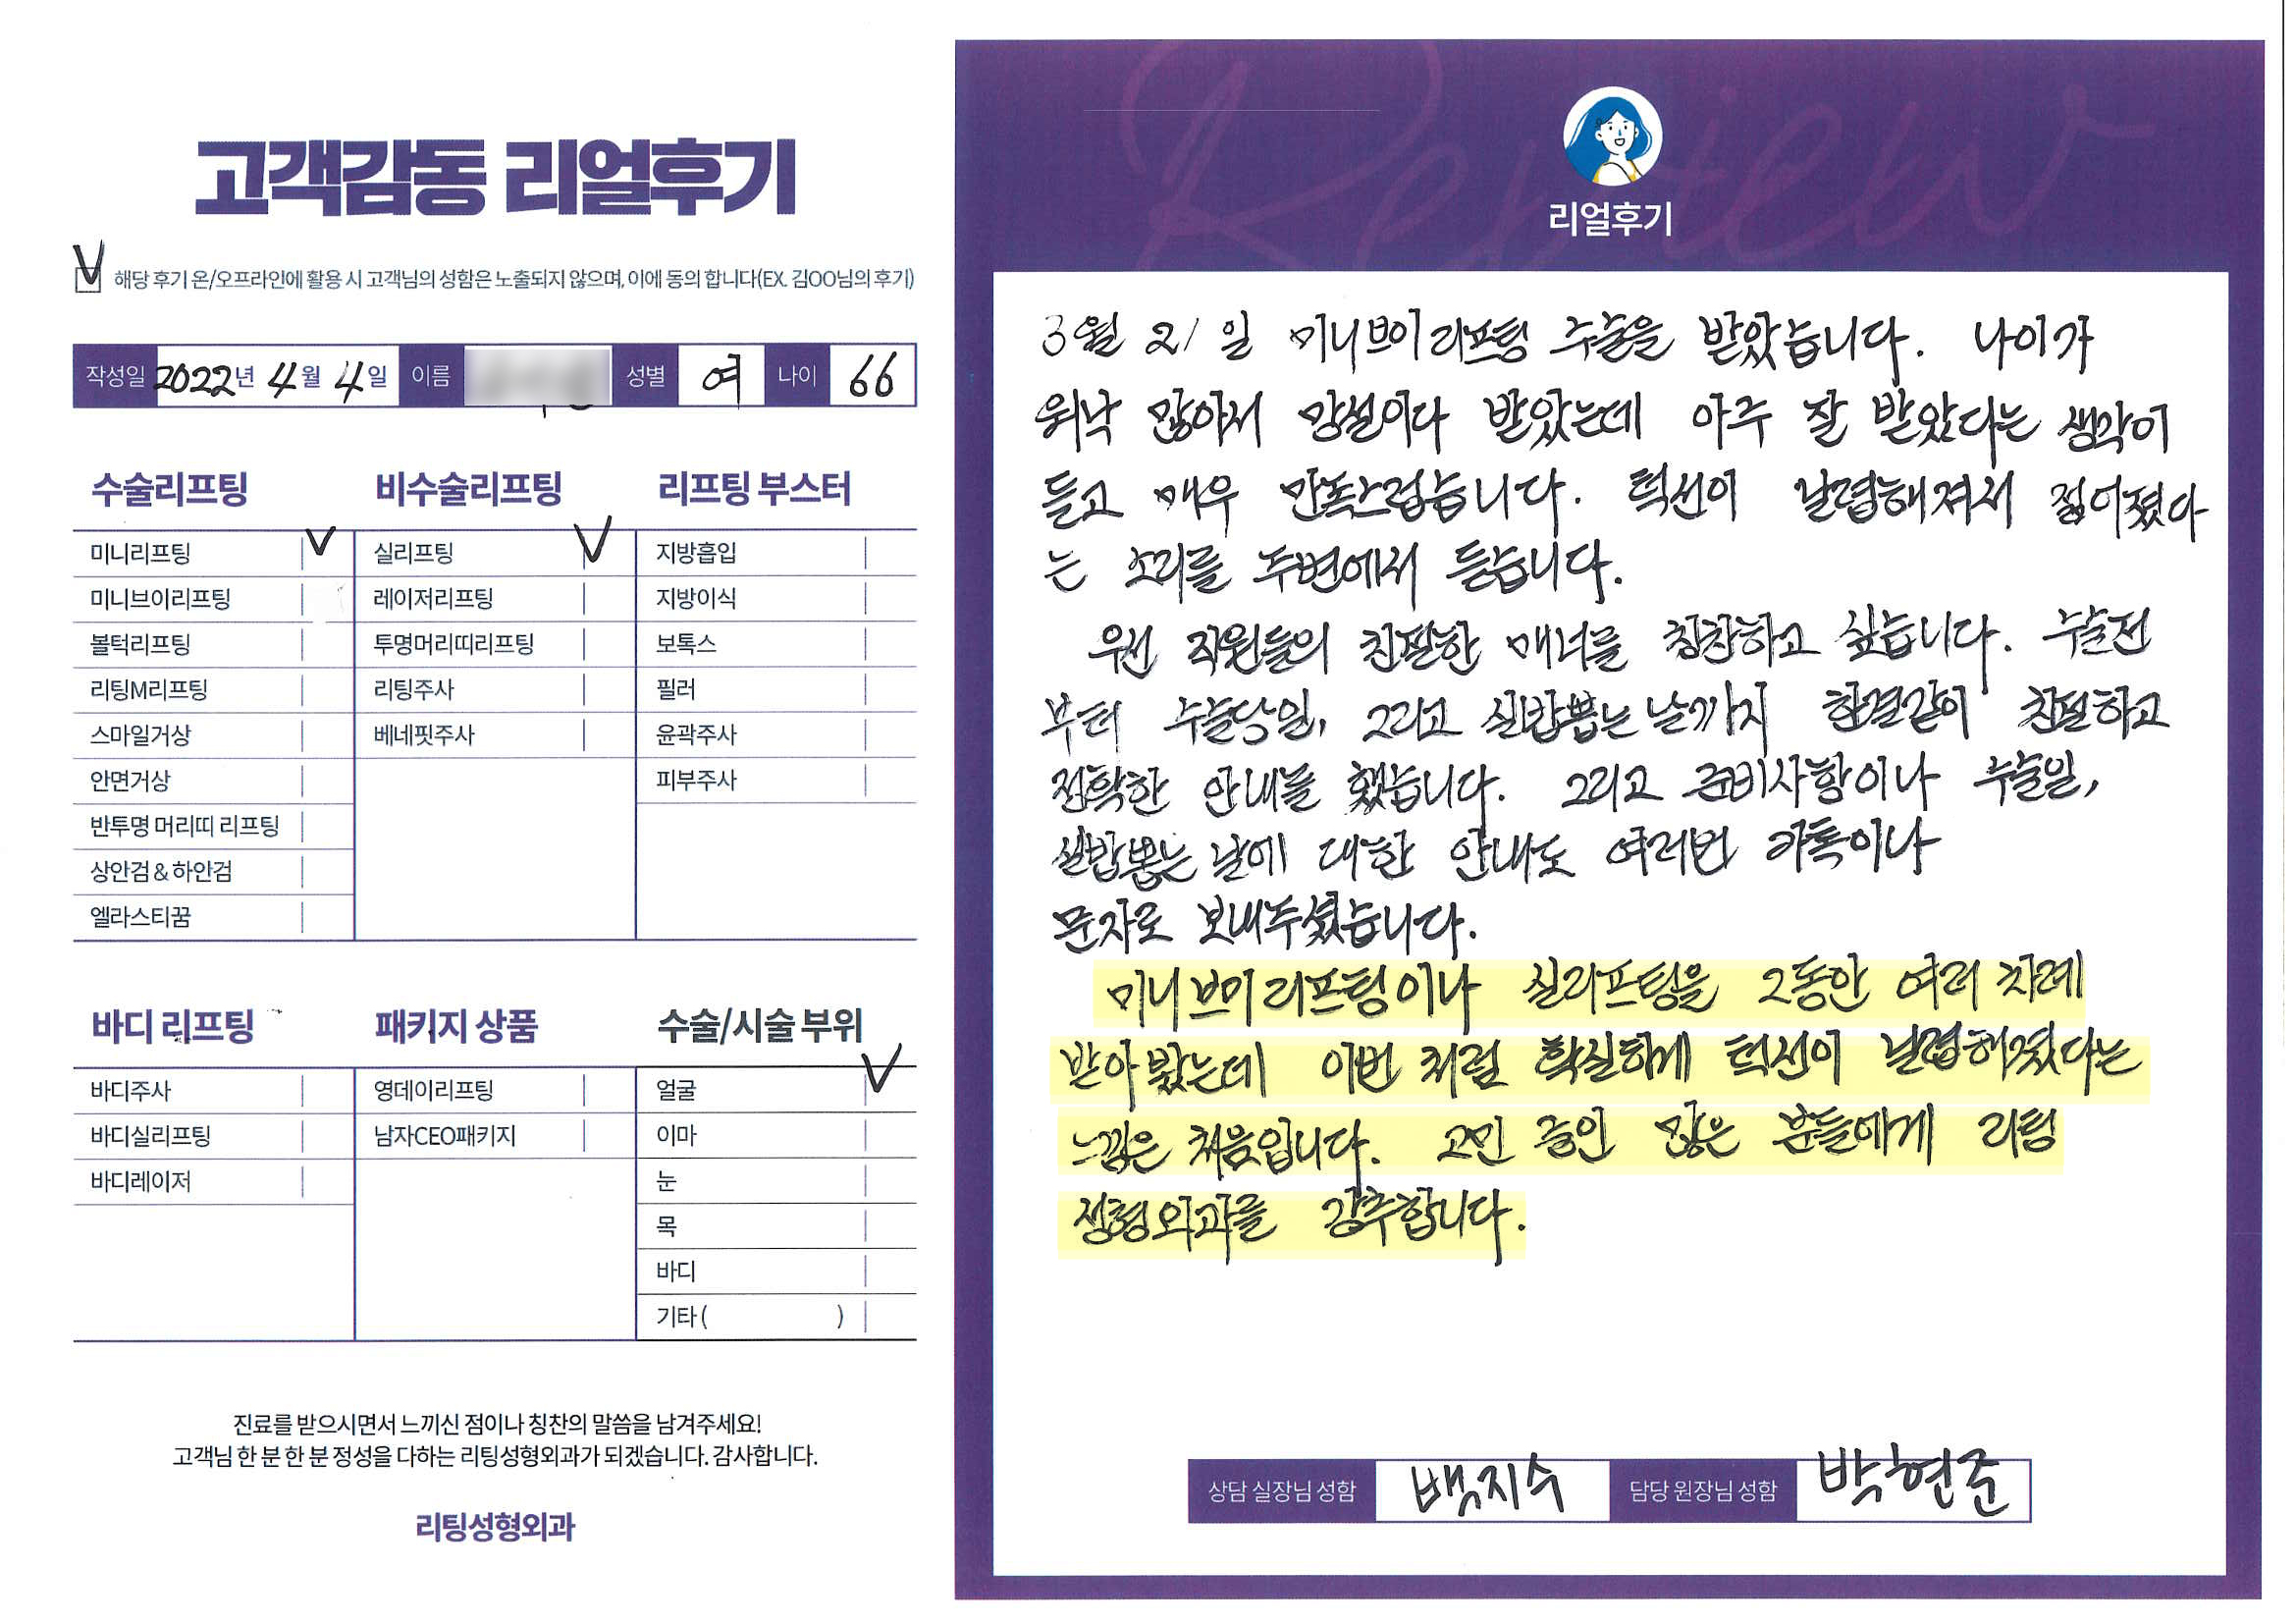 고객감동 리얼후기
V 해당 후기 온/오프라인에 활용 시 고객님의 성함은 노출되지 않으며, 이에 동의 합니다(EX. 김OO님의 후기)
작성일 2022년 4월 4일 이름 성별 여 나이 66
수술리프팅 비수술리프팅 리프팅 부스터
미니리프팅 V 실리프팅 V 지방흡입
미니브이리프팅 레이저리프팅 지방이식
볼턱리프팅 투명머리띠리프팅 보톡스
리팅M리프팅 리팅주사 필러
스마일거상 베네핏주사 윤곽주사
안면거상 피부주사
반투명 머리띠 리프팅
상안검 & 하안검
엘라스티꿈
바디 리프팅 패키지 상품 수술/시술 부위
바디주사 영데이리프팅 얼굴 V
바디실리프팅 남자CEO패키지 이마
바디레이저 눈
목
바디
기타 ( )
진료를 받으시면서 느끼신 점이나 칭찬의 말씀을 남겨주세요!
고객님 한 분 한 분 정성을 다하는 리팅성형외과가 되겠습니다. 감사합니다.
리팅성형외과
Review
리얼후기
3월 21일 미니브이리프팅 수술을 받았습니다. 나이가
워낙 많아서 망설이다 받았는데 아주 잘 받았다는 생각이
들고 매우 만족스럽습니다. 턱선이 날렵해져서 젊어졌다
는 소리를 주변에서 듣습니다.
우선 직원들의 친절한 매너를 칭찬하고 싶습니다. 수술전
부터 수술당일, 그리고 실밥뽑는 날까지 한결같이 친절하고
정확한 안내를 했습니다. 그리고 준비사항이나 수술일,
실밥뽑는 날에 대한 안내도 여러번 카톡이나
문자로 보내주셨습니다.
미니브이리프팅이나 실리프팅을 그동안 여러 차례
받아봤는데 이번 처럼 확실하게 턱선이 날렵해졌다는
느낌은 처음입니다. 고민 중인 많은 분들에게 리팅
성형외과를 강추합니다.
상담 실장님 성함 백지수 담당 원장님 성함 박현준